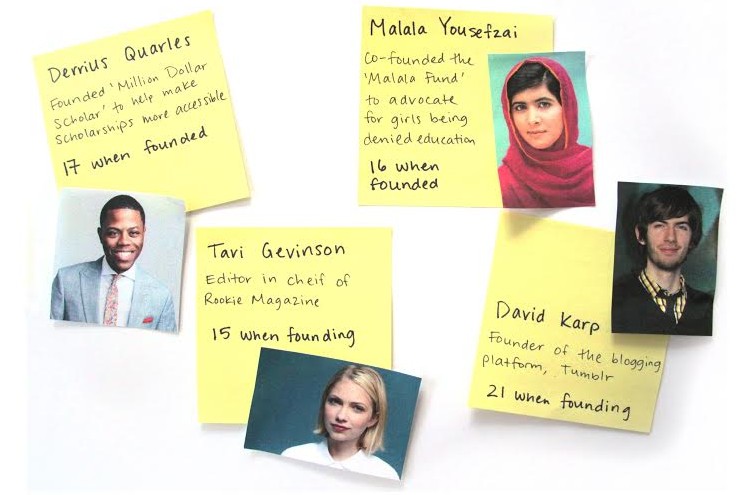 Derrius Quarles
Founded 'Million Dollar
Scholar' to help make
scholarships more accessible
17 when founded
Malala Yousefzai
Co-founded the
'Malala Fund'
to advocate
for girls being
denied education
16 when
founded
Tavi Gevinson
Editor in cheif of
Rookie Magazine
15 when founding
David Karp
Founder of the blogging
platform, Tumblr
21 when founding